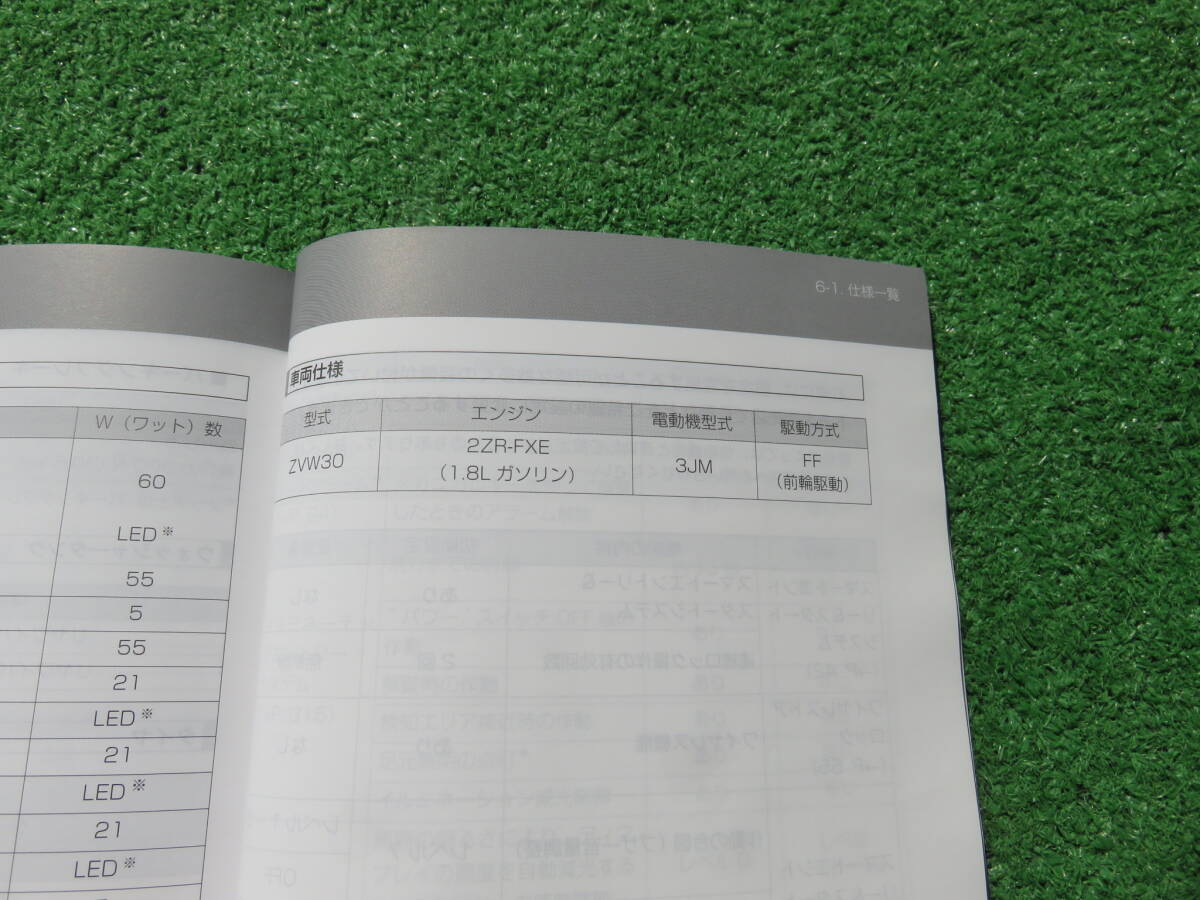 W（ワット）数
60
LED※
55
5
55
21
LED※
21
LED※
21
LED※
6-1. 仕様一覧
車両仕様
型式 エンジン 電動機型式 駆動方式
ZVW30 2ZR-FXE 3JM FF
（1.8L ガソリン） （前輪駆動）